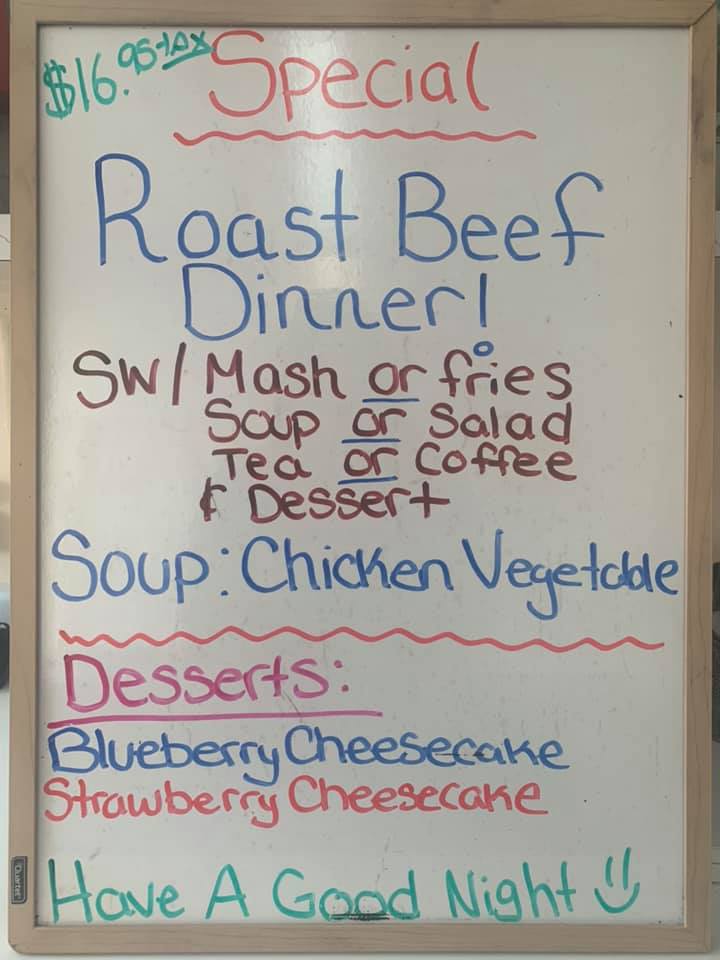 $16.95+TAX Special
Roast Beef
Dinner!
SW/ Mash or fries
Soup or Salad
Tea or Coffee
& Dessert
Soup: Chicken Vegetable
Desserts:
Blueberry Cheesecake
Strawberry Cheesecake
Have A Good Night
Quartet